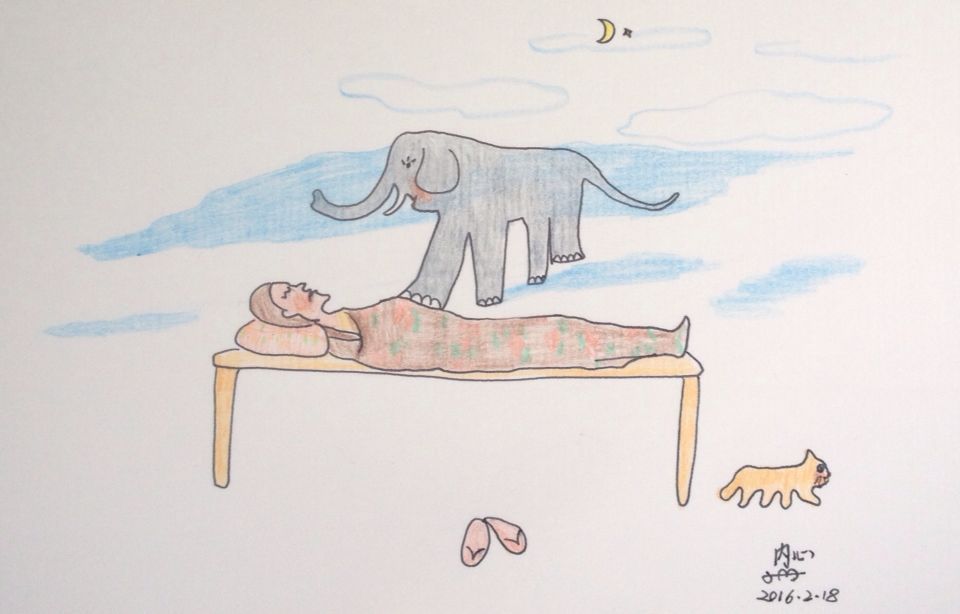 内心
2016.2.18